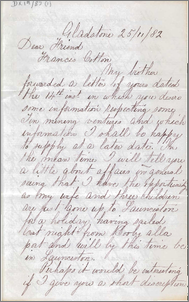 Gladstone 25/11/82
Dear Friend
Frances Cotton
My brother
forwarded a letter of yours dated
the 14th inst in which you desire
some information respecting some
Tin mining ventures and which
information I shall be happy
to supply at a later date. In
the mean time I will tell you
a little about affairs in general
seeing that I have the opportunity
as my wife and three children
are just gone up to Launceston
for a holiday, having sailed
last night from Boobyalla
port and will by this time be
in Launceston.
Perhaps it would be interesting
if I gave you a short description